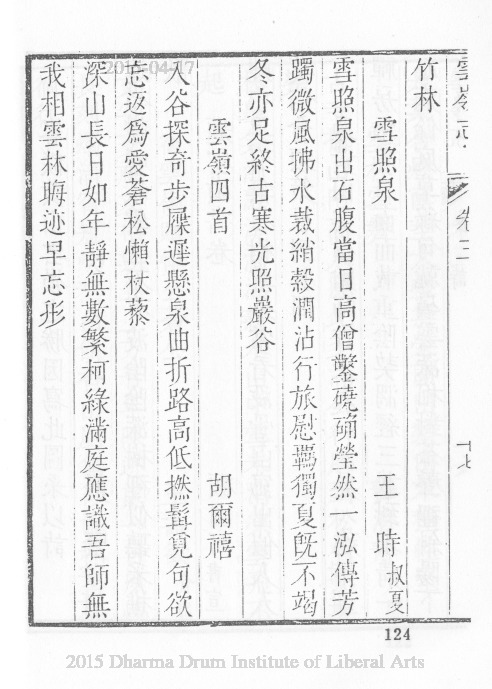 雲嶺志 卷三 十七
竹林
雪照泉 王 時 叔夏
雪照泉出石腹當日高僧鑿磽确瑩然一泓傳芳
躅微風拂水裁綃縠潤沾行旅慰羈獨夏旣不竭
冬亦足終古寒光照巖谷
雲嶺四首 胡爾禧
入谷探奇步屧遲懸泉曲折路高低撚髯覓句欲
忘返爲愛蒼松懶杖藜
深山長日如年靜無數繁柯綠滿庭應識吾師無
我相雲林晦迹早忘形
124
2015 Dharma Drum Institute of Liberal Arts